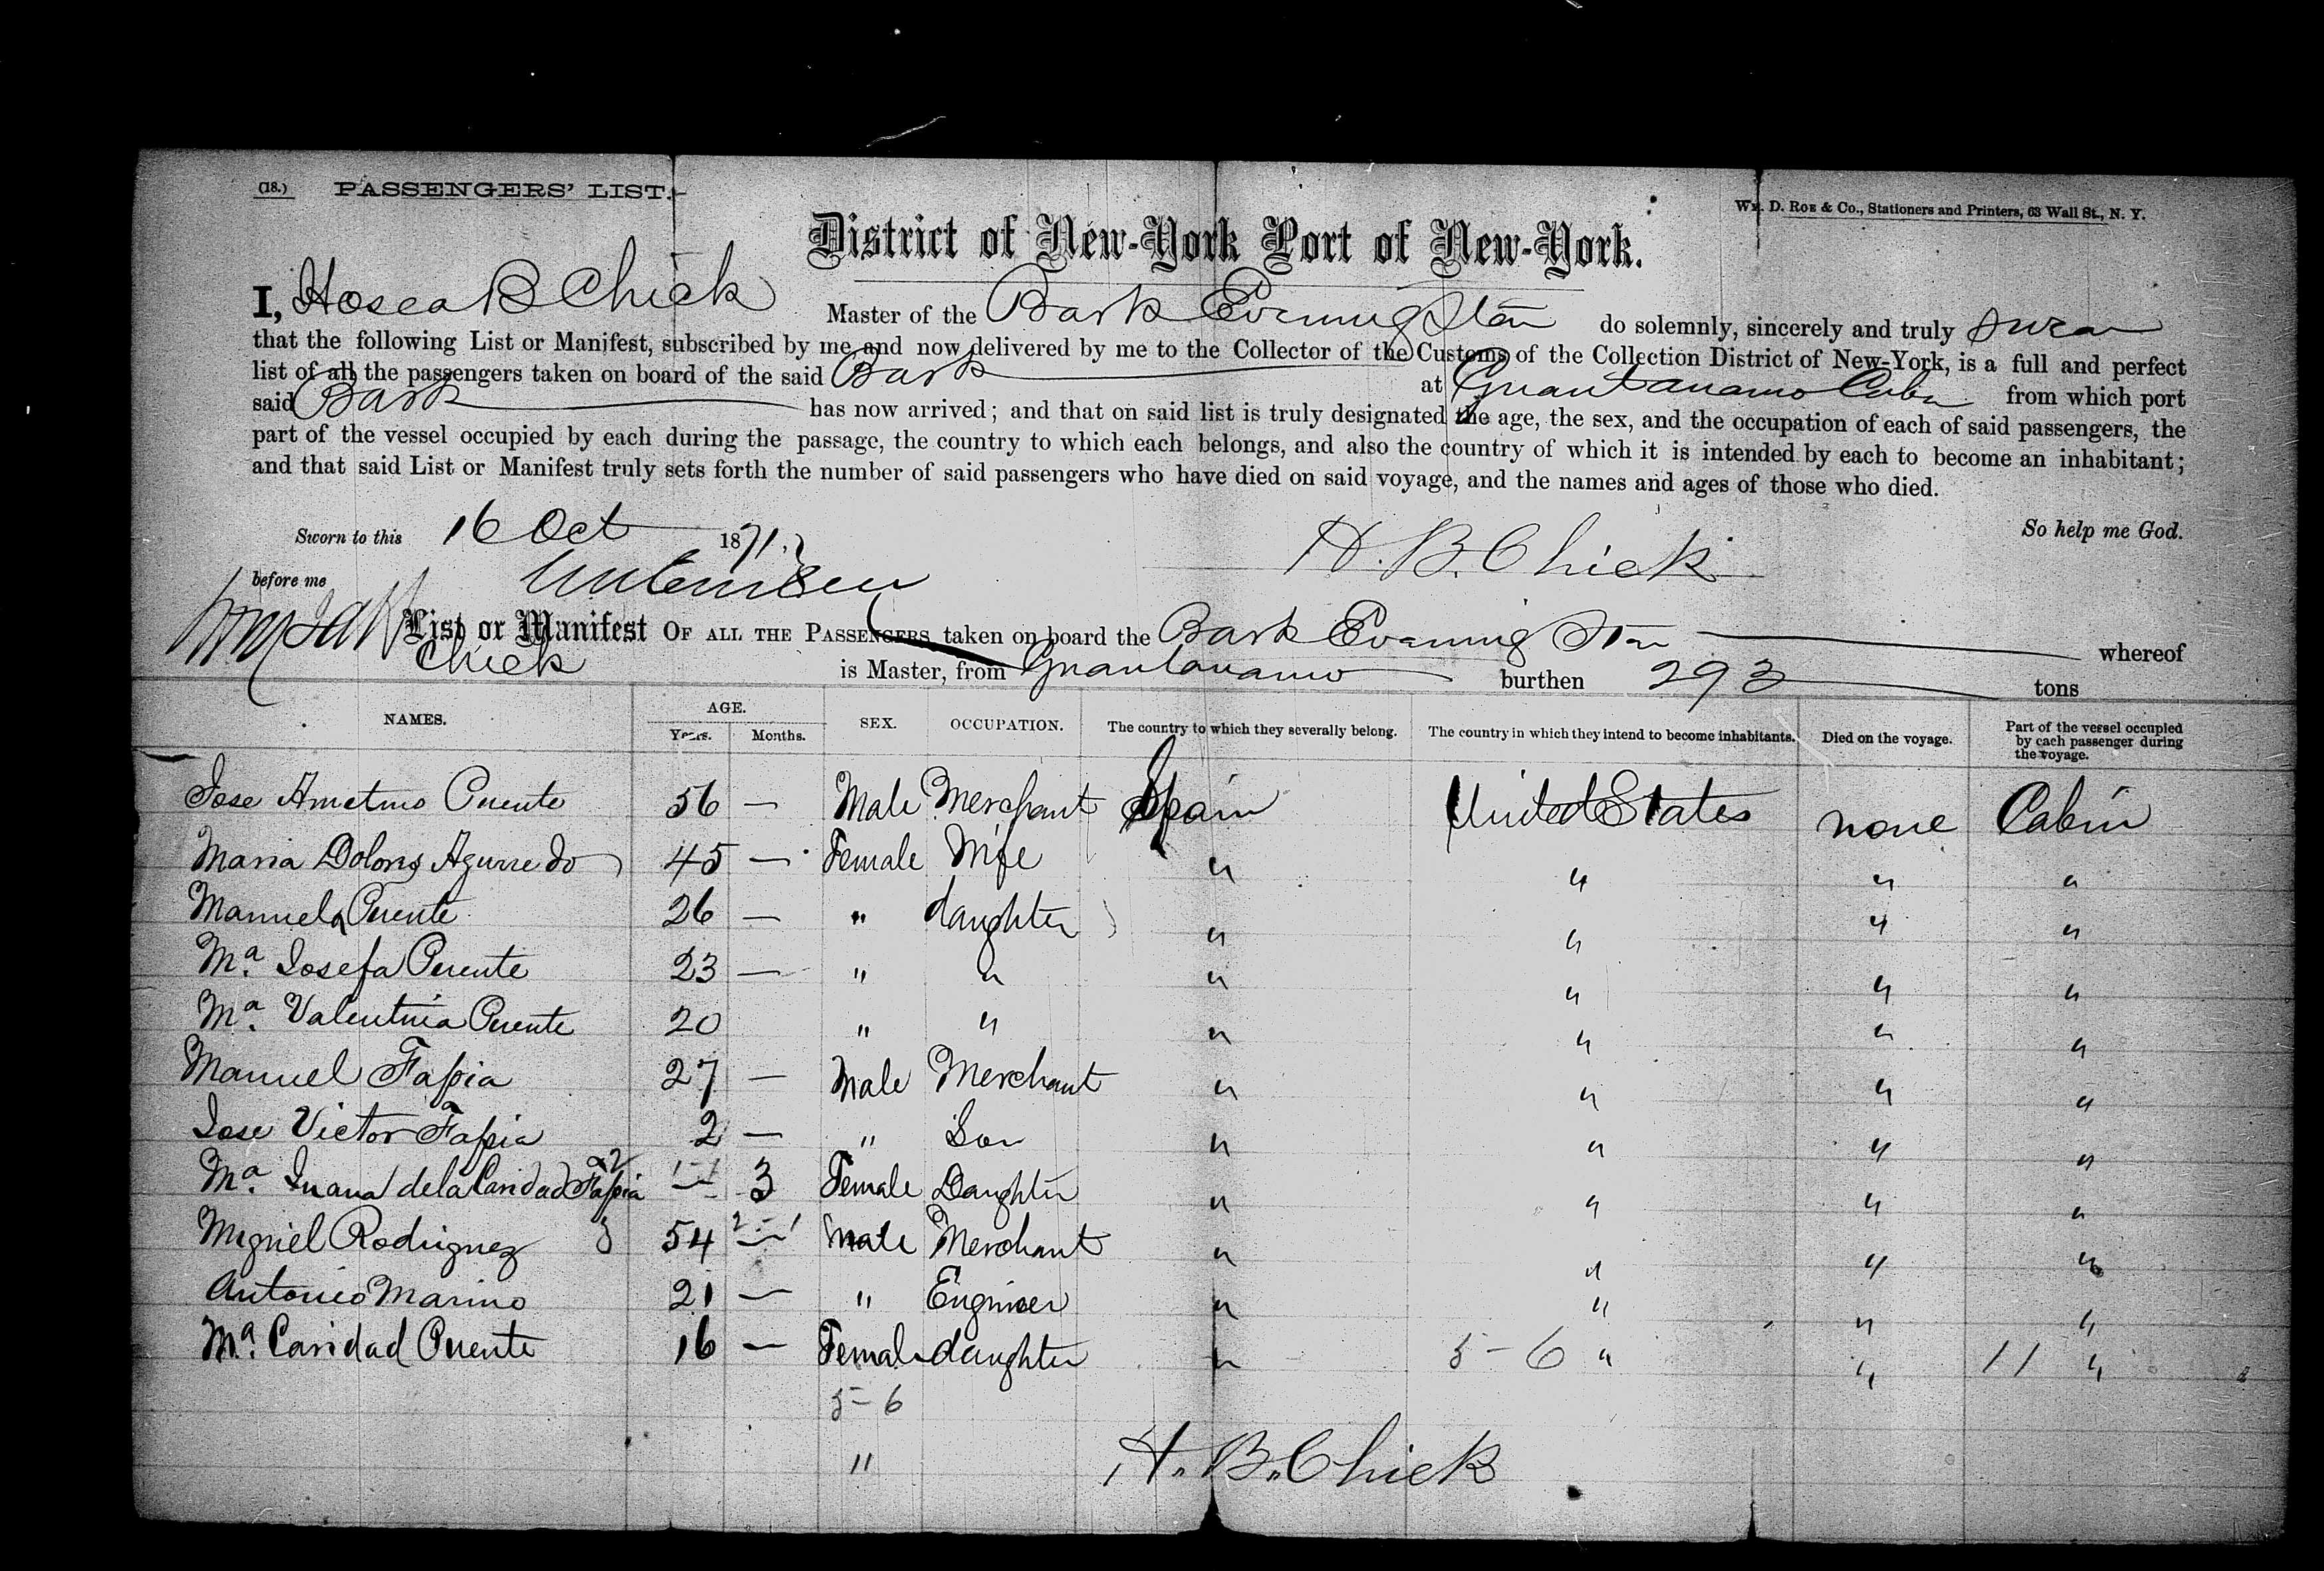 (18.) PASSENGERS' LIST.
Wm. D. Roe & Co., Stationers and Printers, 63 Wall St., N. Y.
District of New-York Port of New-York.
I, Hosea B Chick Master of the Bark Evening Star do solemnly, sincerely and truly swear
that the following List or Manifest, subscribed by me, and now delivered by me to the Collector of the Customs of the Collection District of New-York, is a full and perfect
list of all the passengers taken on board of the said Bark at Guantanamo Cuba from which port
said Bark has now arrived; and that on said list is truly designated the age, the sex, and the occupation of each of said passengers, the
part of the vessel occupied by each during the passage, the country to which each belongs, and also the country of which it is intended by each to become an inhabitant;
and that said List or Manifest truly sets forth the number of said passengers who have died on said voyage, and the names and ages of those who died.
So help me God.
Sworn to this 16 Oct 1871,
H. B. Chick
before me
List or Manifest OF ALL THE PASSENGERS taken on board the Bark Evening Star whereof
Chick is Master, from Guantanamo burthen 293 tons
NAMES. AGE. Years. Months. SEX. OCCUPATION. The country to which they severally belong. The country in which they intend to become inhabitants. Died on the voyage. Part of the vessel occupied by each passenger during the voyage.
Jose Puente 56 — Male Merchant Spain United States none Cabin
Maria Dolores 45 — Female Wife " " " "
Manuela Puente 26 — " daughter " " " "
Ma. Josefa Puente 23 — " " " " " "
Ma. Valentina Puente 20 " " " " " "
Manuel Tapia 27 — Male Merchant " " " "
Jose Victor Tapia 2 — " Son " " " "
Ma. Juana de la Caridad Tapia 3 Female Daughter " " " "
Miguel Rodriguez 54 — Male Merchant " " " "
Antonio Marino 21 — " Engineer " " " "
Ma. Caridad Puente 16 — Female daughter " 5-6 " " 11 "
5-6
"
H. B. Chick